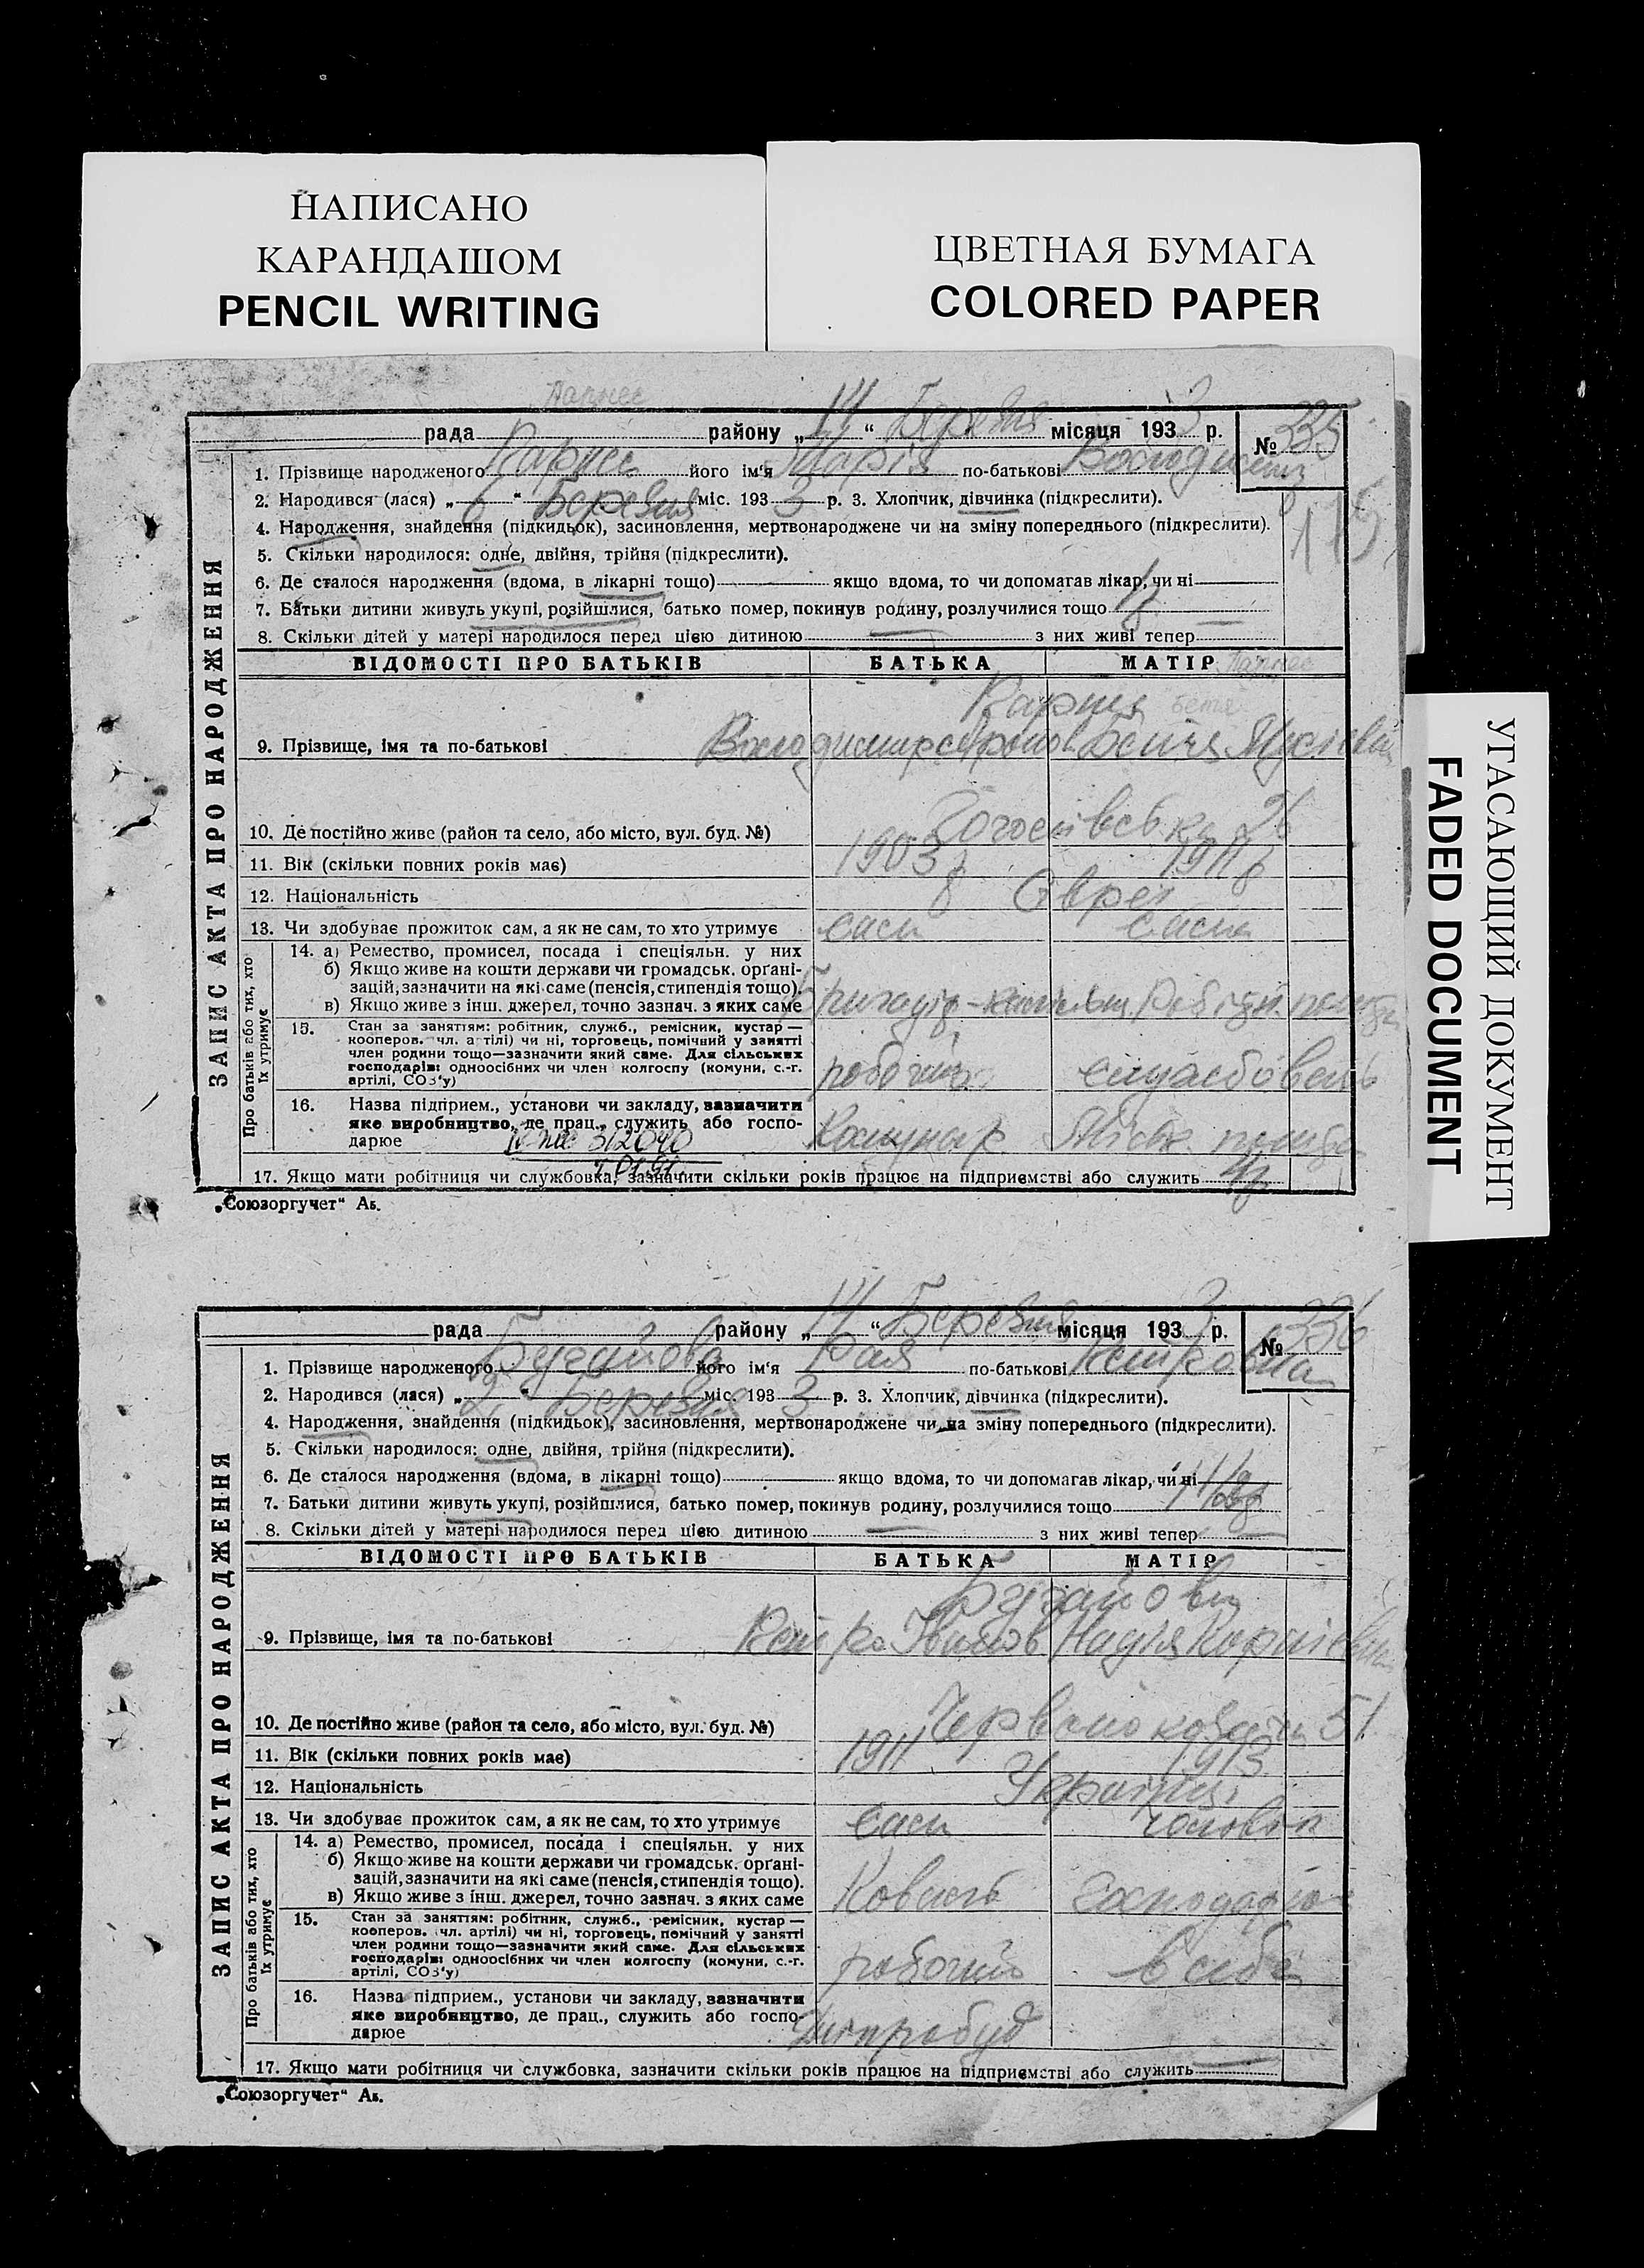 НАПИСАНО
КАРАНДАШОМ
PENCIL WRITING
ЦВЕТНАЯ БУМАГА
COLORED PAPER
УГАСАЮЩИЙ ДОКУМЕНТ
FADED DOCUMENT
рада району „14“ Березня місяця 1933 р. № 335
ЗАПИС АКТА ПРО НАРОДЖЕННЯ
1. Прізвище народженого його ім'я Марія по-батькові
2. Народився (лася) „6“ Березня міс. 1933 р. 3. Хлопчик, дівчинка (підкреслити).
175
4. Народження, знайдення (підкидьок), засиновлення, мертвонароджене чи на зміну попереднього (підкреслити).
5. Скільки народилося: одне, двійня, трійня (підкреслити).
6. Де сталося народження (вдома, в лікарні тощо) якщо вдома, то чи допомагав лікар, чи ні
7. Батьки дитини живуть укупі, розійшлися, батько помер, покинув родину, розлучилися тощо
8. Скільки дітей у матері народилося перед цією дитиною — з них живі тепер
ВІДОМОСТІ ПРО БАТЬКІВ БАТЬКА МАТІР
9. Прізвище, імя та по-батькові Володимир
10. Де постійно живе (район та село, або місто, вул. буд. №) 26
11. Вік (скільки повних років має) 1903 1911
12. Національність Євреї
13. Чи здобуває прожиток сам, а як не сам, то хто утримує сам сама
Про батьків або тих, хто їх утримує
14. а) Ремество, промисел, посада і спеціяльн. у них
б) Якщо живе на кошти держави чи громадськ. органі-
зацій, зазначити на які саме (пенсія, стипендія тощо).
в) Якщо живе з інш. джерел, точно зазнач. з яких саме
15. Стан за заняттям: робітник, служб., ремісник, кустар —
кооперов. чл. артілі) чи ні, торговець, помічний у занятті
член родини тощо—зазначити який саме. Для сільських
господарів: одноосібних чи член колгоспу (комуни, с.-г.
артілі, СОЗ'у)
робочий службовець
16. Назва підприєм., установи чи закладу, зазначити
яке виробництво, де прац., служить або госпо-
дарює
Комунар
17. Якщо мати робітниця чи службовка, зазначити скільки років працює на підприємстві або служить
„Союзоргучет“ Аб.
рада району „14“ Березня місяця 1933 р. № 336
ЗАПИС АКТА ПРО НАРОДЖЕННЯ
1. Прізвище народженого Бугайова його ім'я Рая по-батькові Петровна
2. Народився (лася) „2“ Березня міс. 1933 р. 3. Хлопчик, дівчинка (підкреслити).
4. Народження, знайдення (підкидьок), засиновлення, мертвонароджене чи на зміну попереднього (підкреслити).
5. Скільки народилося: одне, двійня, трійня (підкреслити).
6. Де сталося народження (вдома, в лікарні тощо) якщо вдома, то чи допомагав лікар, чи ні
7. Батьки дитини живуть укупі, розійшлися, батько помер, покинув родину, розлучилися тощо
8. Скільки дітей у матері народилося перед цією дитиною — з них живі тепер
ВІДОМОСТІ ПРО БАТЬКІВ БАТЬКА МАТІР
Бугайови
9. Прізвище, імя та по-батькові Петро Іванов Надія
10. Де постійно живе (район та село, або місто, вул. буд. №) 51
11. Вік (скільки повних років має) 1911 1913
12. Національність Українці
13. Чи здобуває прожиток сам, а як не сам, то хто утримує сам чоловік
Про батьків або тих, хто їх утримує
14. а) Ремество, промисел, посада і спеціяльн. у них
б) Якщо живе на кошти держави чи громадськ. органі-
зацій, зазначити на які саме (пенсія, стипендія тощо).
в) Якщо живе з інш. джерел, точно зазнач. з яких саме
Коваль
15. Стан за заняттям: робітник, служб., ремісник, кустар —
кооперов. чл. артілі) чи ні, торговець, помічний у занятті
член родини тощо—зазначити який саме. Для сільських
господарів: одноосібних чи член колгоспу (комуни, с.-г.
артілі, СОЗ'у)
робочий в себе
16. Назва підприєм., установи чи закладу, зазначити
яке виробництво, де прац., служить або госпо-
дарює
17. Якщо мати робітниця чи службовка, зазначити скільки років працює на підприємстві або служить
„Союзоргучет“ Аб.